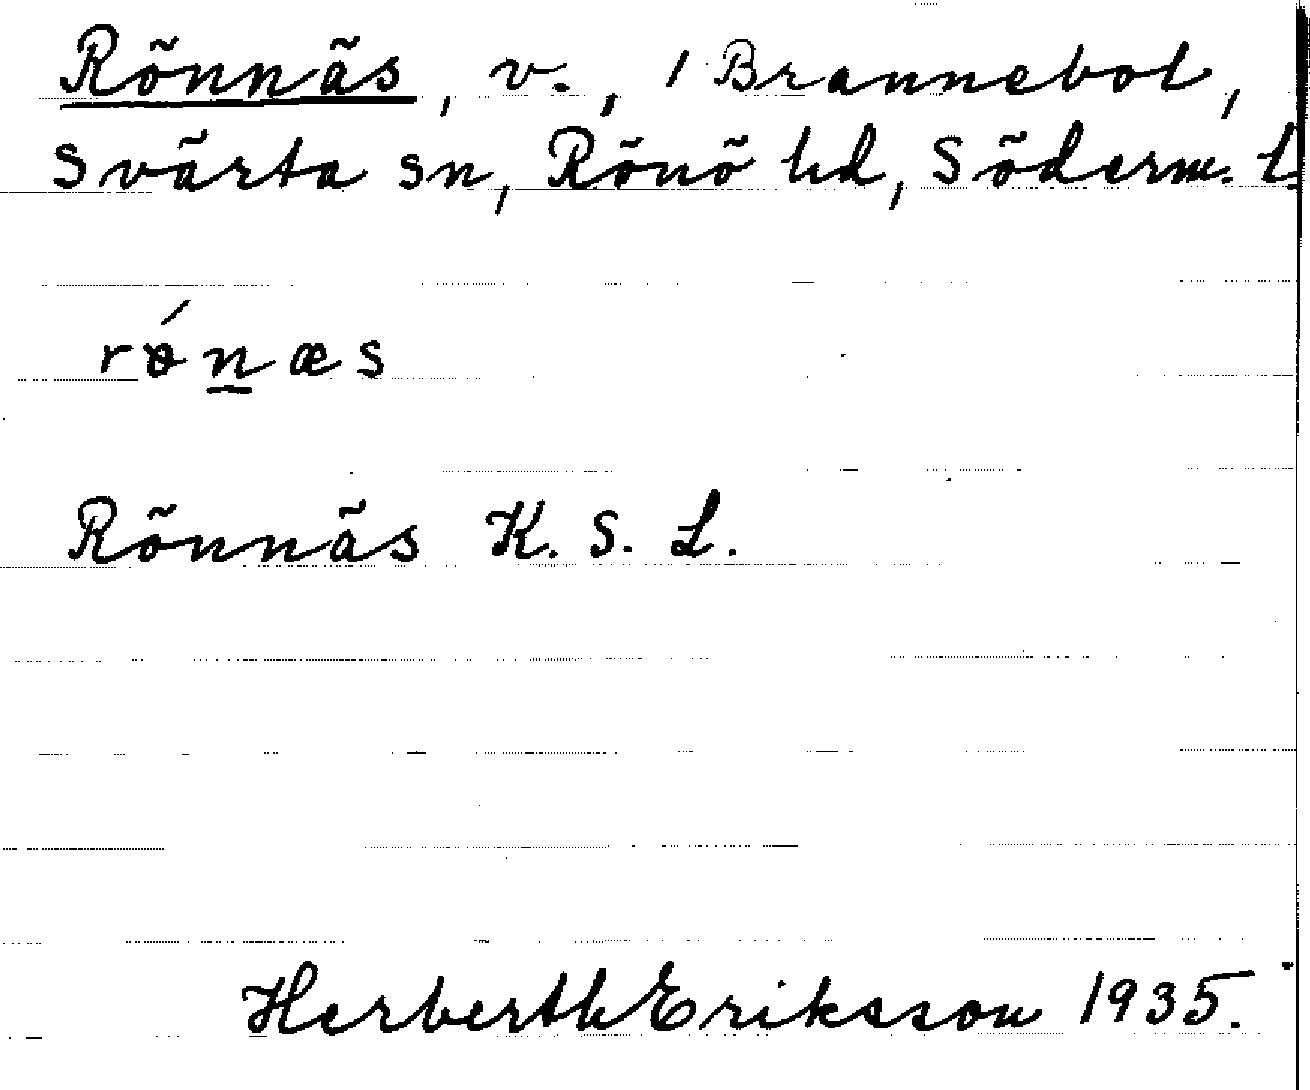 Rönnäs, v., 1 Brannebol,
Svärta sn, Rönö hd, Söderm. l
rǿn̲æs
Rönnäs K. S. L.
Herberth Eriksson 1935.